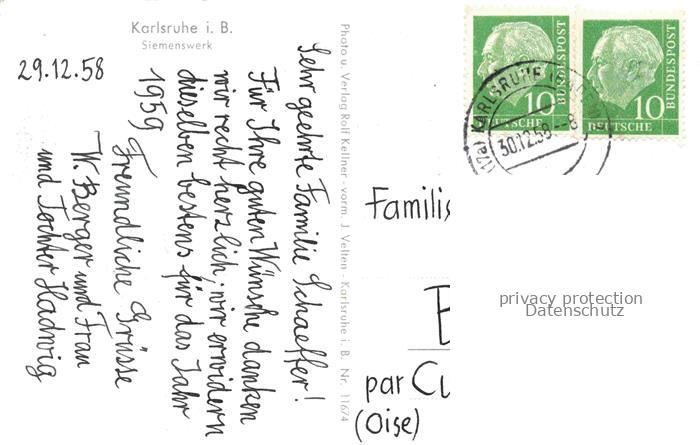 Karlsruhe i. B.
Siemenswerk
29.12.58
Sehr geehrte Familie Schaeffer!
Für Ihre guten Wünsche danken
wir recht herzlich; wir erwidern
dieselben bestens für das Jahr
1959
Freundliche Grüsse
W. Berger und Frau
und Tochter Hadwig
Photo u. Verlag Rolf Kellner - vorm. J. Velten - Karlsruhe i. B. Nr. 11674
10
BUNDESPOST
DEUTSCHE
10
BUNDESPOST
DEUTSCHE
(17a) KARLSRUHE
30.12.58.-8
Famili
par Cu
(Oise)
privacy protection
Datenschutz